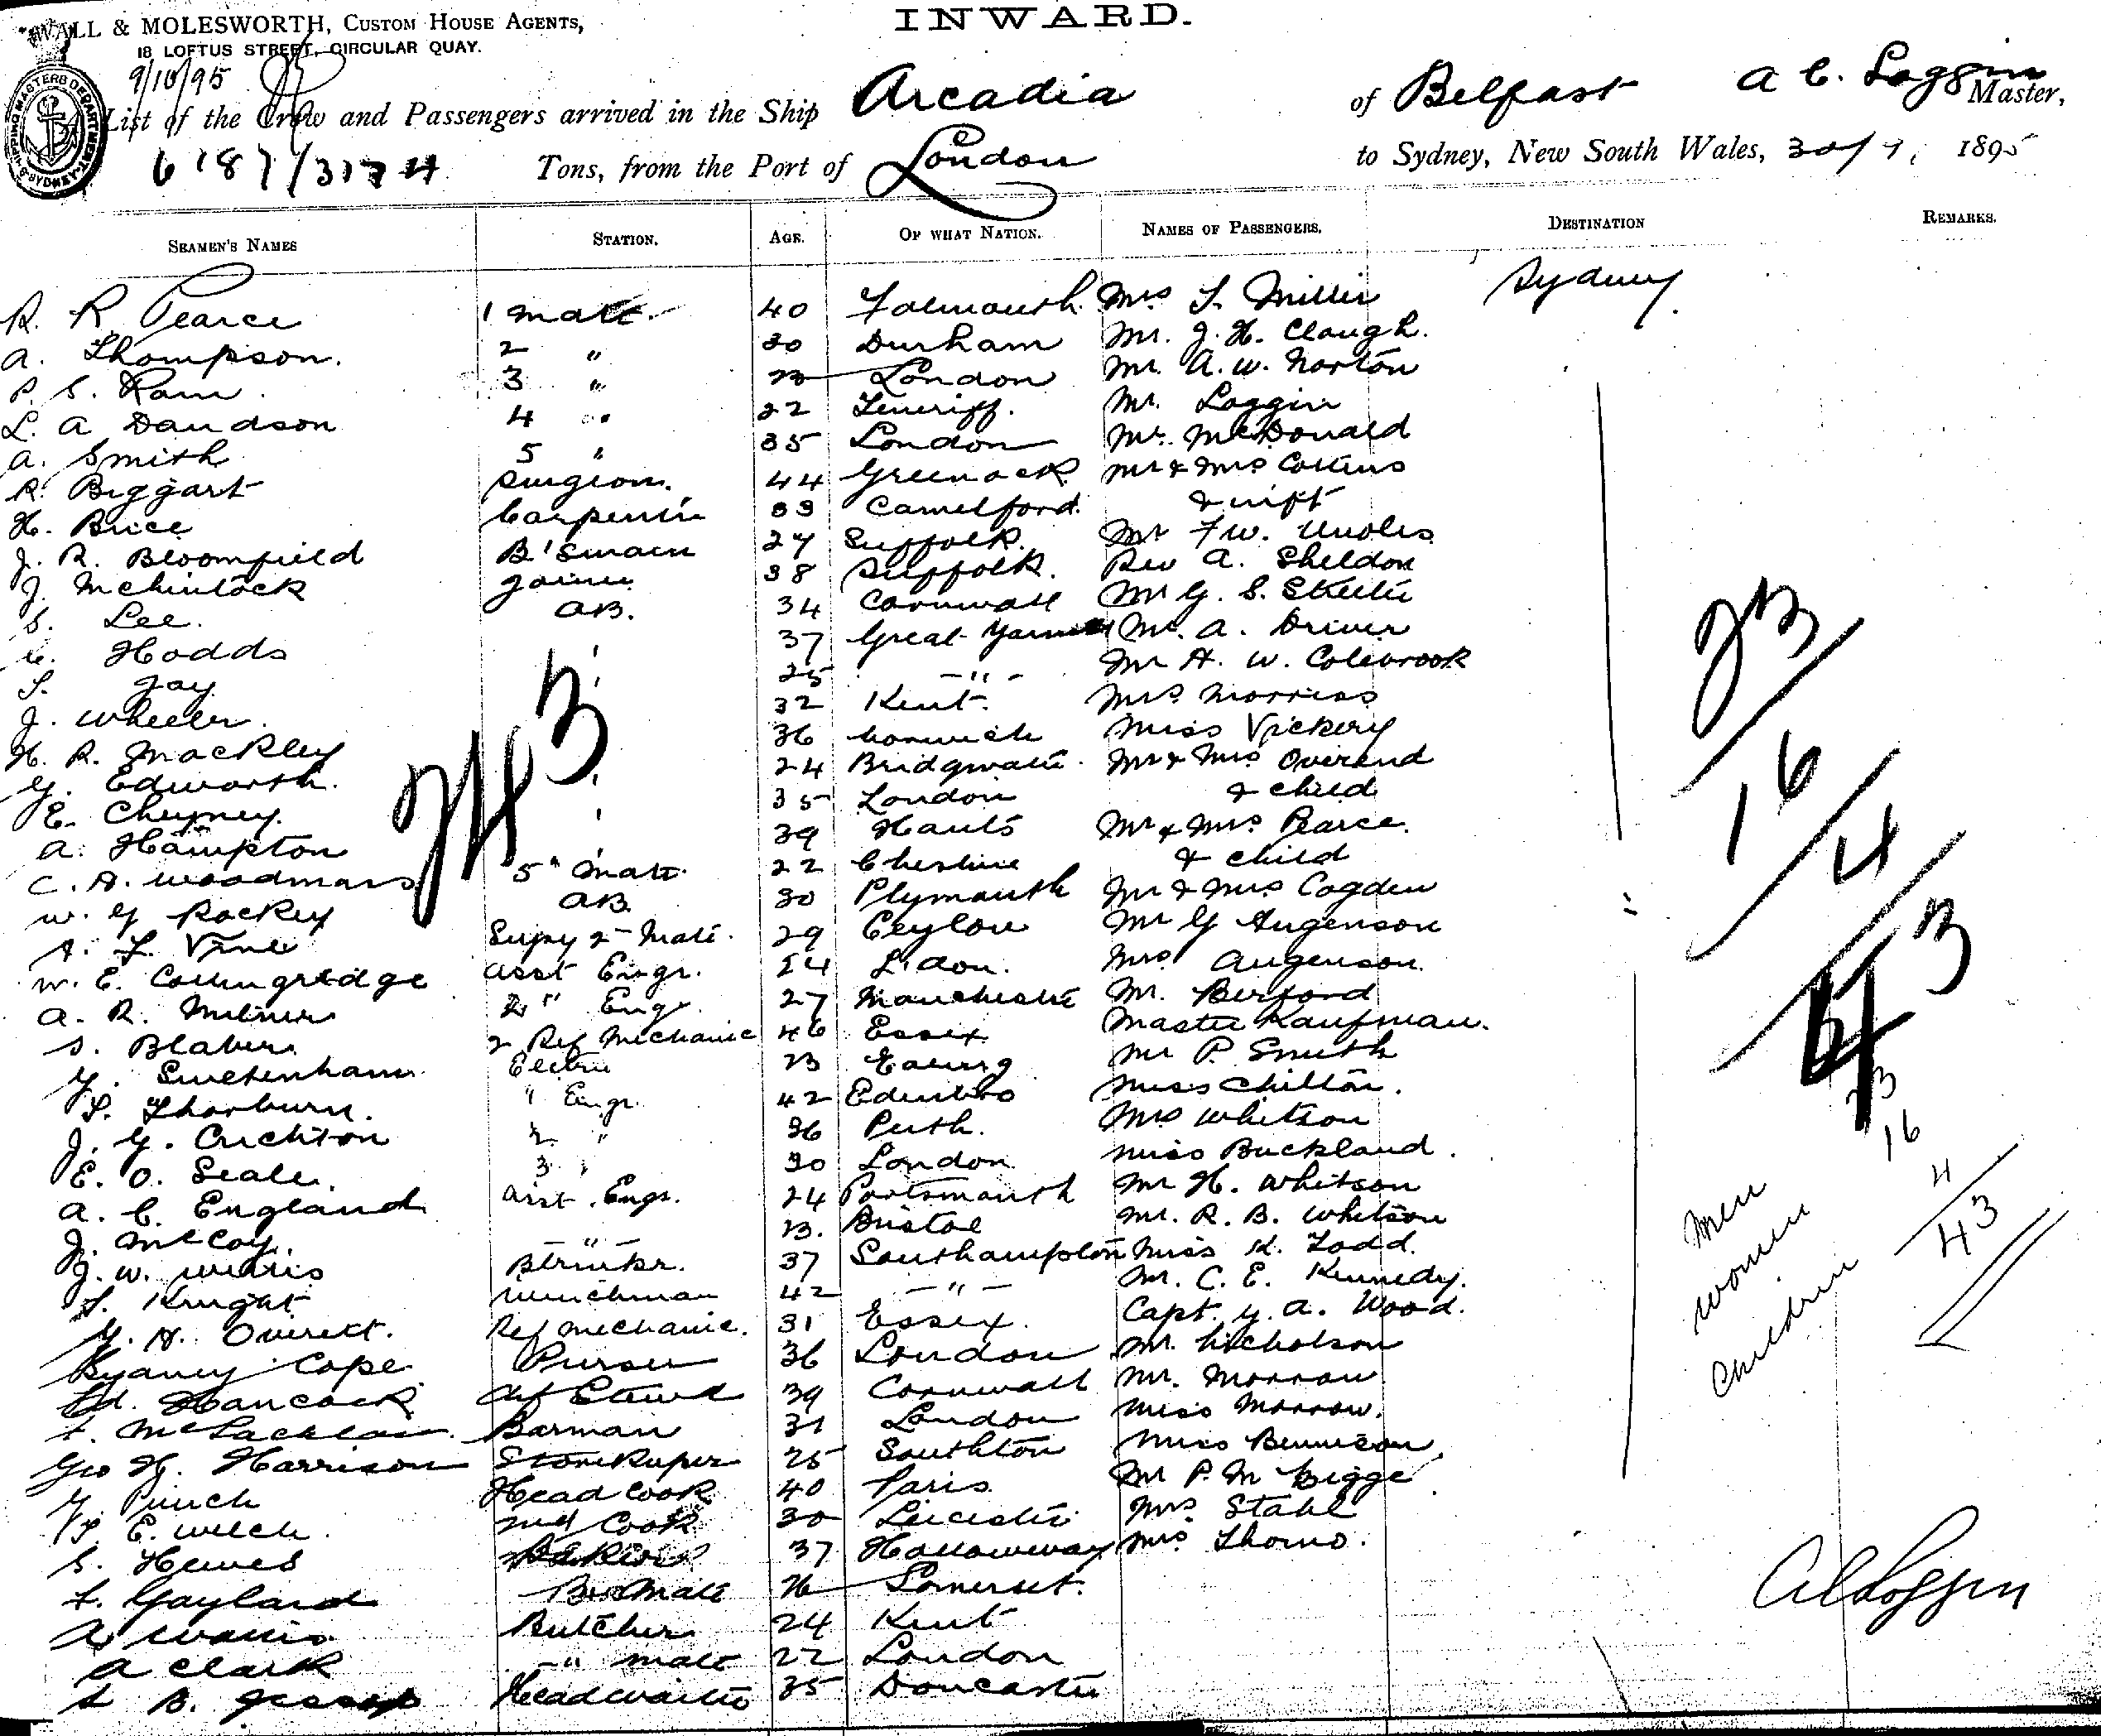 WALL & MOLESWORTH, CUSTOM HOUSE AGENTS,
18 LOFTUS STREET, CIRCULAR QUAY.
INWARD.
9/10/95
SHIPPING MASTERS DEPARTMENT SYDNEY
List of the Crew and Passengers arrived in the Ship Arcadia of Belfast A C. Loggin Master,
6187/3174 Tons, from the Port of London to Sydney, New South Wales, 30/7, 1895
SEAMEN'S NAMES STATION. AGE. OF WHAT NATION. NAMES OF PASSENGERS. DESTINATION REMARKS.
R. R. Pearce 1 Mate 40 Falmouth Mrs T. Miller Sydney
A. Thompson. 2 " 30 Durham Mr. J. H. Clough.
P. S. Ram. 3 " 23 London Mr. A. W. Norton
L. A Davidson 4 " 22 Teneriff. Mr. Loggin
A. Smith 5 " 35 London Mr. McDonald
R. Biggart Surgeon. 44 Greenock Mr & Mrs Collins
H. Brice Carpenter 33 Camelford. &
J. R. Bloomfield B'Swain 27 Suffolk. Mr F W.
J. McClintock Joiner 38 Suffolk. Rev A. Sheldon
S. Lee. AB. 34 Cornwall Mr G. S.
C. Hodds 37 Great Yarmouth Mr. A. Driver
S. Jay 25 -"- Mr H. W. Colebrook
J. Wheeler. 32 Kent. Mrs. Morriss
H. R. Mackley 36 Norwich Miss Vickery
G. Edworth. 24 Bridgwater. Mr & Mrs Overend
E. Cheyney. 35 London & child
A. Hampton 39 Hants Mr & Mrs. Pearce.
C. H. Woodmans 5" Mate. 22 Cheshire & child
W. G Rockey AB 30 Plymouth Mr & Mrs Cogden
A. L. Vine Supy 2nd Mate. 29 Ceylon Mr G Augenson
W. E. Collingridge Asst Engr. 24 Mrs Augenson.
A. R. Milner 2" Engr 27 Manchester Mr. Berford
S. Blaber 2 Ref Mechanic 46 Essex Master Kaufman.
G. Swetenham. Electric 23 Mr P. Smith
T. Thorburn. " Engr. 42 Edinbro Miss Chilton.
J. G. Crichton 2 " 36 Perth. Mrs Whitson
E. O. Seale. 3 " 30 London Miss Buckland.
A. C. England Asst. Engr. 24 Portsmouth Mr H. Whitson
J. McCoy. -"- 23. Bristol Mr. R. B. Whitson
J. W. Willis 37 Southampton Miss K. Todd.
T. Knight Winchman 42 -"- Mr. C. E. Kennedy.
G. H. Overett. Ref Mechanic. 31 Essex. Capt. G. A. Wood.
Cope Purser 36 London Mr. Nicholson
Ed. Hancock Chf Stewd 39 Cornwall Mr. Morrow
McLachlan Barman 31 London Miss Morrow.
Geo H. Harrison Storekeeper 25 Southton Miss Bennison.
G. Punch Head Cook 40 Paris. Mr P. M Bigge
T. E. Welch. 2nd Cook 30 Leicester Mrs Stahl
S. Hewes 37 Holloway Mrs Thoms.
Gaylard Mate 26 Somerset.
A Wallis Butcher 24 Kent
A Clark -" Mate 22 London
B. Jessop Head Waiter 35 Doncaster
243
23
16
4
43
Men 23
Women 16
Children 4
43
A C Loggin